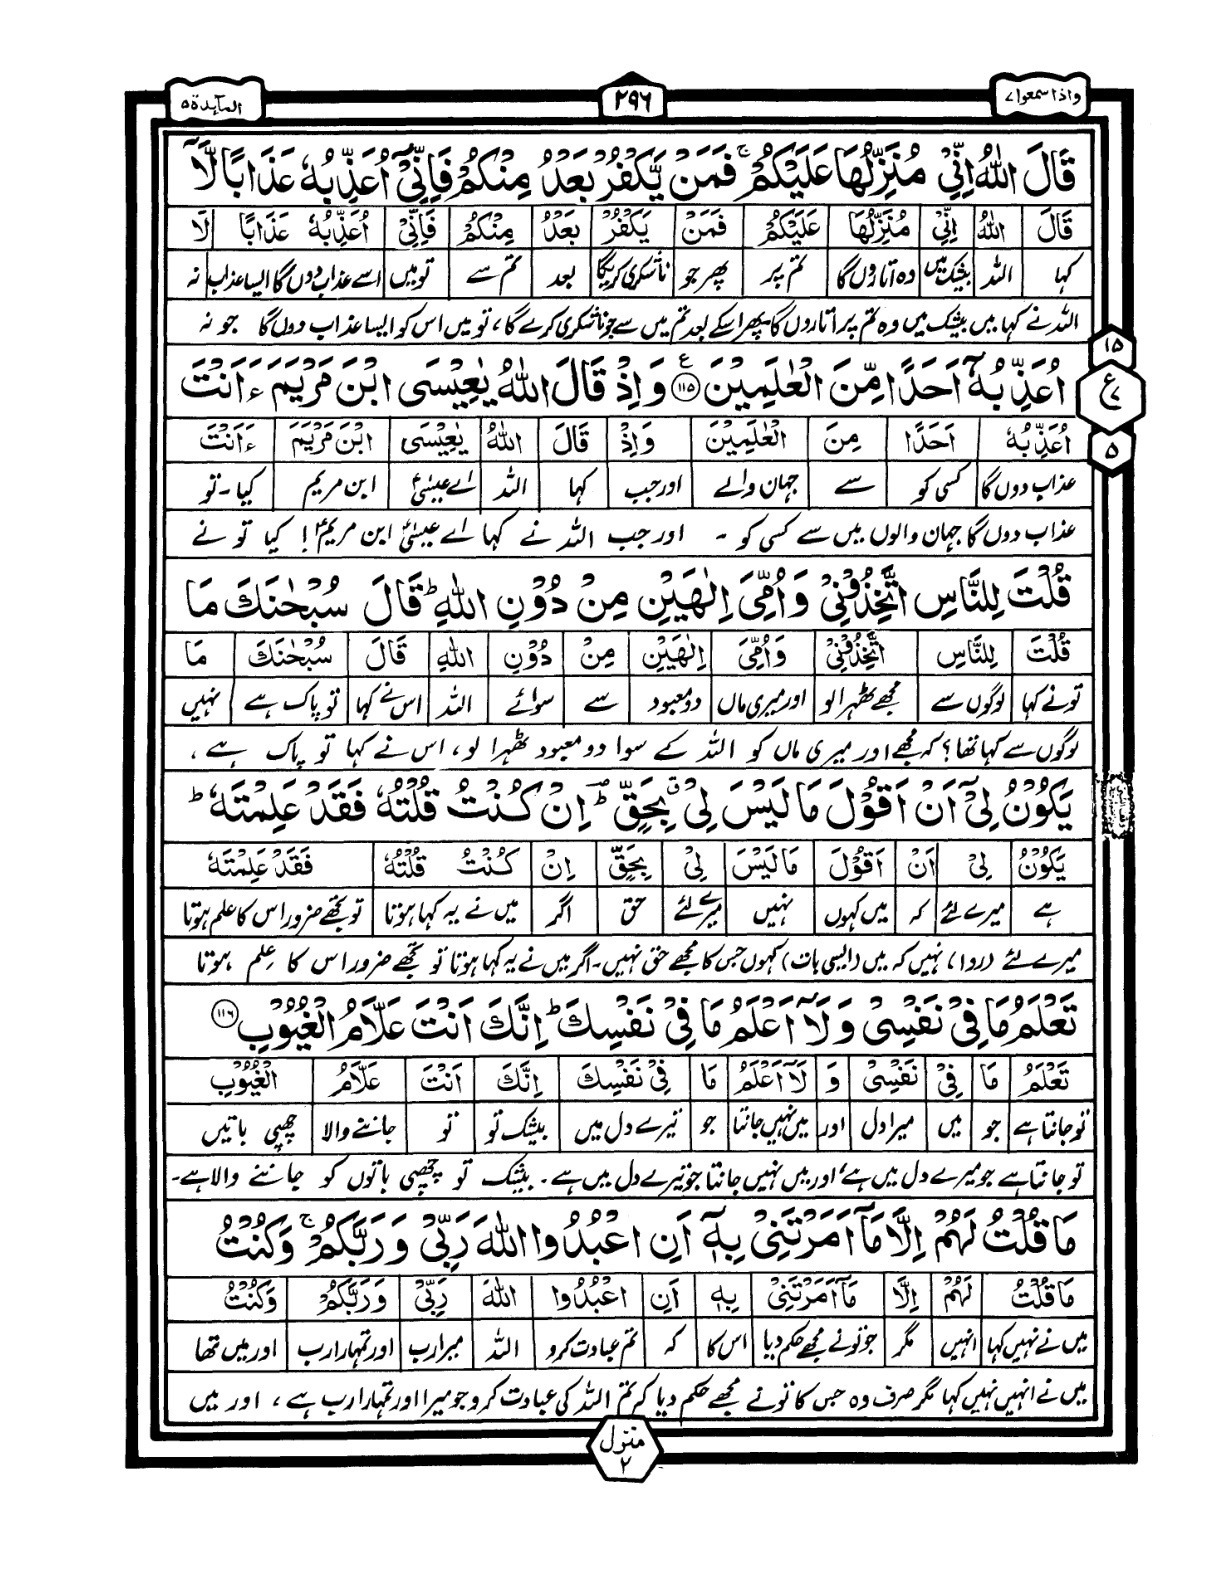 واذا سمعوا ۷
۲۹۶
المآىِٕدة ۵
قَالَ اللّٰهُ اِنِّیْ مُنَزِّلُهَا عَلَیْكُمْ ۚ فَمَنْ یَّكْفُرْ بَعْدُ مِنْكُمْ فَاِنِّیْۤ اُعَذِّبُهٗ عَذَابًا لَّاۤ
قَالَ اللّٰهُ اِنِّیْ مُنَزِّلُهَا عَلَیْكُمْ فَمَنْ یَكْفُرْ بَعْدُ مِنْكُمْ فَاِنِّیْ اُعَذِّبُهٗ عَذَابًا لَا
کہا اللہ بیشک میں وہ اتاروں گا تم پر پھر جو ناشکری کریگا بعد تم سے تو میں اسے عذاب دوں گا ایسا عذاب نہ
اللہ نے کہا میں بیشک میں وہ تم پر اتاروں گا پھر اسکے بعد تم میں سے جو ناشکری کرے گا، تو میں اس کو ایسا عذاب دوں گا جو نہ
اُعَذِّبُهٗۤ اَحَدًا مِّنَ الْعٰلَمِیْنَ ۱۱۵ ع وَ اِذْ قَالَ اللّٰهُ یٰعِیْسَی ابْنَ مَرْیَمَ ءَاَنْتَ
۱۵
ع ۷
۵
اُعَذِّبُهٗ اَحَدًا مِنَ الْعٰلَمِیْنَ وَاِذْ قَالَ اللّٰهُ یٰعِیْسَی ابْنَ مَرْیَمَ ءَاَنْتَ
عذاب دوں گا کسی کو سے جہان والے اور جب کہا اللہ اے عیسیٰؑ ابن مریم کیا۔ تو
عذاب دوں گا جہان والوں میں سے کسی کو ۔ اور جب اللہ نے کہا اے عیسیٰؑ ابن مریمؑ! کیا تو نے
قُلْتَ لِلنَّاسِ اتَّخِذُوْنِیْ وَ اُمِّیَ اِلٰهَیْنِ مِنْ دُوْنِ اللّٰهِ ؕ قَالَ سُبْحٰنَكَ مَا
قُلْتَ لِلنَّاسِ اتَّخِذُوْنِیْ وَاُمِّیَ اِلٰهَیْنِ مِنْ دُوْنِ اللّٰهِ قَالَ سُبْحٰنَكَ مَا
تو نے کہا لوگوں سے مجھے ٹھہرا لو اور میری ماں دو معبود سے سوائے اللہ اس نے کہا تو پاک ہے نہیں
لوگوں سے کہا تھا؟ کہ مجھے اور میری ماں کو اللہ کے سوا دو معبود ٹھہرا لو، اس نے کہا تو پاک ہے،
یَكُوْنُ لِیْۤ اَنْ اَقُوْلَ مَا لَیْسَ لِیْ ۗ بِحَقٍّ ؕؔ اِنْ كُنْتُ قُلْتُهٗ فَقَدْ عَلِمْتَهٗ ؕ
یَكُوْنُ لِیْ اَنْ اَقُوْلَ مَا لَیْسَ لِیْ بِحَقٍّ اِنْ كُنْتُ قُلْتُهٗ فَقَدْ عَلِمْتَهٗ
ہے میرے لئے کہ میں کہوں نہیں میرے لئے حق اگر میں نے یہ کہا ہوتا تو تجھے ضرور اس کا علم ہوتا
میرے لئے (روا) نہیں کہ میں (ایسی بات) کہوں جس کا مجھے حق نہیں۔ اگر میں نے یہ کہا ہوتا تو تجھے ضرور اس کا علم ہوتا
تَعْلَمُ مَا فِیْ نَفْسِیْ وَ لَاۤ اَعْلَمُ مَا فِیْ نَفْسِكَ ؕ اِنَّكَ اَنْتَ عَلَّامُ الْغُیُوْبِ ۱۱۶
تَعْلَمُ مَا فِیْ نَفْسِیْ وَ لَاۤ اَعْلَمُ مَا فِیْ نَفْسِكَ اِنَّكَ اَنْتَ عَلَّامُ الْغُیُوْبِ
تو جانتا ہے جو میں میرا دل اور میں نہیں جانتا جو تیرے دل میں بیشک تو تو جاننے والا چھپی باتیں
تو جانتا ہے جو میرے دل میں ہے اور میں نہیں جانتا جو تیرے دل میں ہے۔ بیشک تو چھپی باتوں کو جاننے والا ہے۔
مَا قُلْتُ لَهُمْ اِلَّا مَاۤ اَمَرْتَنِیْ بِهٖۤ اَنِ اعْبُدُوا اللّٰهَ رَبِّیْ وَ رَبَّكُمْ ۚ وَ كُنْتُ
مَا قُلْتُ لَهُمْ اِلَّا مَاۤ اَمَرْتَنِیْ بِهٖ اَنِ اعْبُدُوا اللّٰهَ رَبِّیْ وَرَبَّكُمْ وَكُنْتُ
میں نے نہیں کہا انہیں مگر جو تو نے مجھے حکم دیا اس کا کہ تم عبادت کرو اللہ میرا رب اور تمہارا رب اور میں تھا
میں نے انہیں نہیں کہا مگر صرف وہ جس کا تو نے مجھے حکم دیا کہ تم اللہ کی عبادت کرو جو میرا اور تمہارا رب ہے، اور میں
منزل ۲